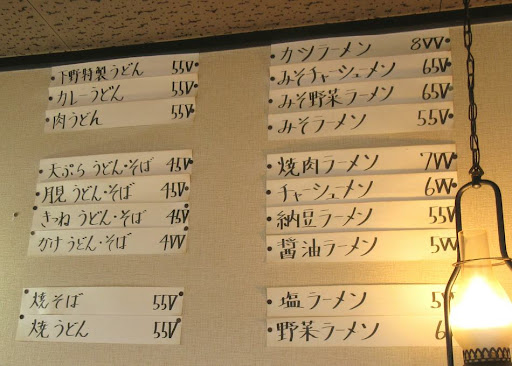 下野特製うどん 550
カレーうどん 550
肉うどん 550
天ぷらうどん・そば 450
月見うどん・そば 450
きつねうどん・そば 450
かけうどん・そば 400
焼そば 550
焼うどん 550
カツラーメン 800
みそチャーシュメン 650
みそ野菜ラーメン 650
みそラーメン 550
焼肉ラーメン 700
チャーシュメン 600
納豆ラーメン 550
醤油ラーメン 500
塩ラーメン
野菜ラーメン